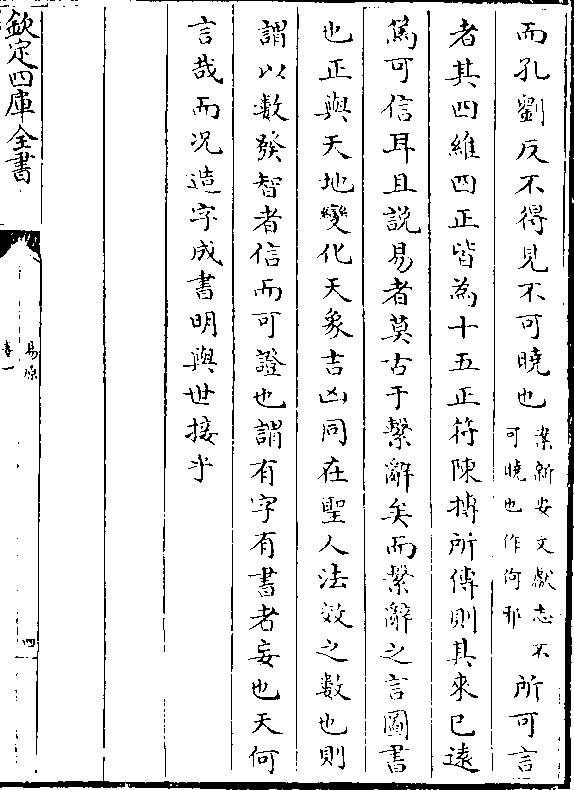 而孔劉反不得見不可曉也案新安文獻志不可曉也作何邪所可言
者其四維四正皆為十五正符陳摶所傳則其來已遠
篤可信耳且說易者莫古于繫辭矣而繫辭之言圖書
也正與天地變化天象吉凶同在聖人法效之數也則
謂以數發智者信而可證也謂有字有書者妄也天何
言哉而况造字成書明與世接乎
欽定四庫全書
易原
卷一
四